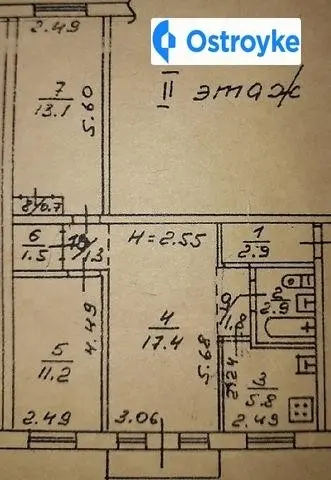 Ostroyke
2.49
7
13.1
5.60
II этаж
8/0.7
6
1.5
1.3
H=2.55
1
2.9
2
2.9
4
17.4
4.49
5.68
5
11.2
2.24
3
5.8
2.49
3.06
2.49